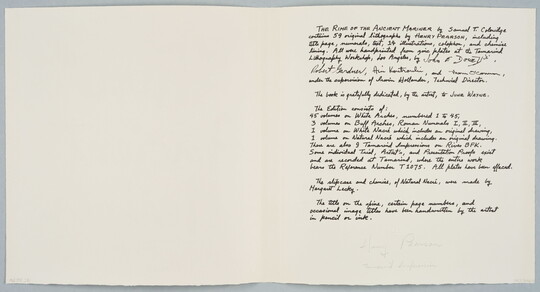 THE RIME OF THE ANCIENT MARINER by Samuel T. Coleridge
contains 59 original lithographs by HENRY PEARSON, including
title page, numerals, text, 24 illustrations, colophon, and chemise
lining. All were handprinted from zinc plates at the Tamarind
Lithography Workshop, Los Angeles, by John
Robert Gardner, and
under the supervision of Irwin Hollander, Technical Director.
The book is gratefully dedicated, by the artist, to JUNE WAYNE.
The Edition consists of:
45 volumes on White Arches, numbered 1 to 45,
3 volumes on Buff Arches, Roman Numerals I, II, III,
1 volume on White Nacré which includes an original drawing,
1 volume on Natural Nacré which includes an original drawing.
There are also 9 Tamarind Impressions on Rives BFK.
Some individual Trial, Artist's, and Presentation Proofs exist
and are recorded at Tamarind, where the entire work
bears the Reference Number T 2075. All plates have been effaced.
The slipcase and chemise, of Natural Nacré, were made by
Margaret Lecky.
The title on the spine, certain page numbers, and
occasional image titles have been handwritten by the artist
in pencil or ink.
Henry Pearson